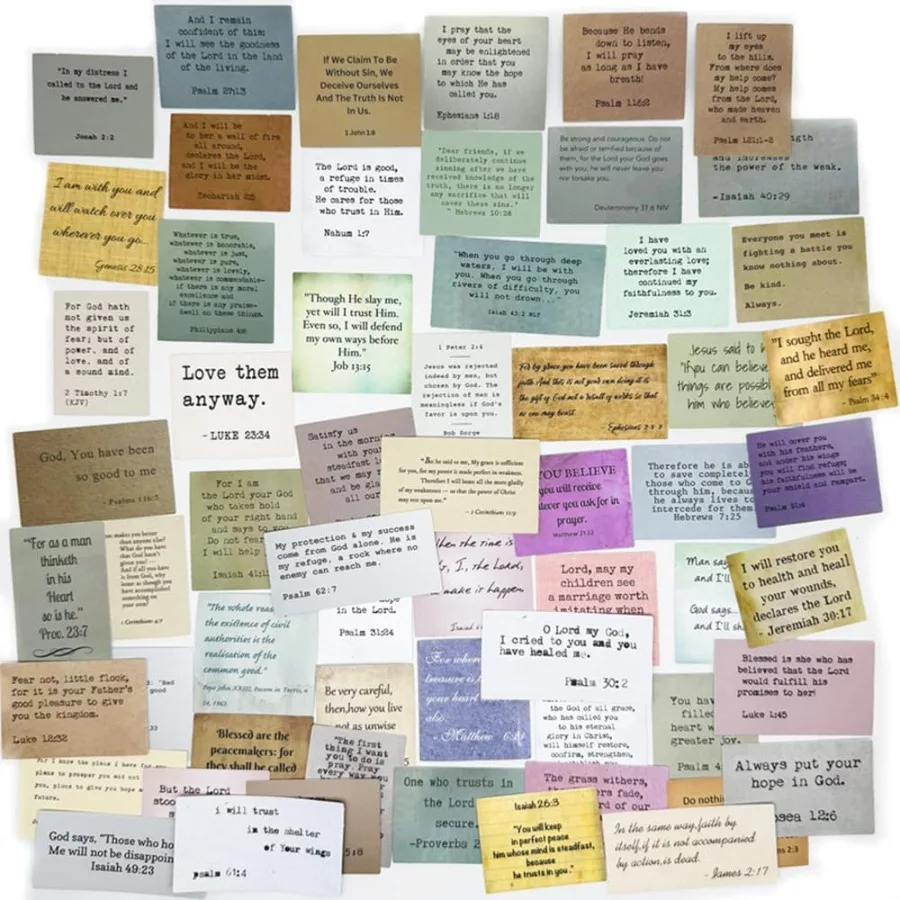 "In my distress I
called to the Lord and
he answered me."
Jonah 2:2
And I remain
confident of this:
I will see the goodness
of the Lord in the land
of the living.
Psalm 27:13
If We Claim To Be
Without Sin, We
Deceive Ourselves
And The Truth Is Not
In Us.
1 John 1:8
I pray that the
eyes of your heart
may be enlightened
in order that you
may know the hope
to which He has
called you.
Ephesians 1:18
Because He bends
down to listen,
I will pray
as long as I have
breath!
Psalm 116:2
I lift up
my eyes
to the hills.
From where does
my help come?
My help comes
from the Lord,
who made heaven
and earth.
Psalm 121:1-2
and increases
the power of the weak.
-Isaiah 40:29
And I will be
to her a wall of fire
all around,
declares the Lord,
and I will be the
glory in her midst.
Zechariah 2:5
I am with you and
will watch over you
wherever you go...
Genesis 28:15
The Lord is good,
a refuge in times
of trouble.
He cares for those
who trust in Him.
Nahum 1:7
"Dear friends, if we
deliberately continue
sinning after we have
received knowledge of the
truth, there is no longer
any sacrifice that will
cover these sins."
Hebrews 10:26
Be strong and courageous. Do not
be afraid or terrified because of
them, for the Lord your God goes
with you; he will never leave you
nor forsake you.
Deuteronomy 31:6 NIV
Whatever is true,
whatever is honorable,
whatever is just,
whatever is pure,
whatever is lovely,
whatever is commendable-
if there is any moral
excellence and
if there is any praise-
dwell on these things.
Philippians 4:8
"When you go through deep
waters, I will be with
you. When you go through
rivers of difficulty, you
will not drown..."
Isaiah 43:2 NLT
I have
loved you with an
everlasting love;
therefore I have
continued my
faithfulness to you.
Jeremiah 31:3
Everyone you meet is
fighting a battle you
know nothing about.
Be kind.
Always.
For God hath
not given us
the spirit of
fear; but of
power, and of
love, and of
a sound mind.
2 Timothy 1:7
(KJV)
"Though He slay me,
yet will I trust Him.
Even so, I will defend
my own ways before
Him."
Job 13:15
Love them
anyway.
- LUKE 23:34
1 Peter 2:4
Jesus was rejected
indeed by men, but
chosen by God. The
rejection of men is
meaningless if God's
favor is upon you.
Bob Sorge
For by grace you have been saved through
faith. And this is not your own doing; it is
the gift of God, not a result of works, so that
no one may boast.
Ephesians 2:8-9
Jesus said to
"If you can believe
things are possi
him who believe
"I sought the Lord,
and he heard me,
and delivered me
from all my fears"
- Psalm 34:4
God, You have been
so good to me
- Psalms 116:7
Satisfy us
in the morning
with your
steadfast l
that we may
and be gla
all our
"But he said to me, My grace is sufficient
for you, for my power is made perfect in weakness.
Therefore I will boast all the more gladly
of my weaknesses — so that the power of Christ
may rest upon me."
YOU BELIEVE
you will receive
ever you ask for in
prayer.
Matthew 21:22
Therefore he is ab
to save completel
those who come to G
through him, becaus
he always lives to
intercede for them.
Hebrews 7:25
He will cover you
with his feathers,
and under his wings
you will find refuge;
his faithfulness will be
your shield and rampart.
Psalm 91:4
For I am
the Lord your God
who takes hold
of your right hand
and says to you
Do not fear
I will help
Isaiah 41:1
"For as a man
thinketh
in his
Heart
so is he."
Prov. 23:7
makes you better
than anyone else?
What do you have
that God hasn't
given you?
1 Corinthians 4:7
My protection & my success
come from God alone. He is
my refuge, a rock where no
enemy can reach me.
Psalm 62:7
When the time is
I, the Lord,
make it happen
Lord, may my
children see
a marriage worth
imitating when
Man say
and I'll
God says
and I'll sh
I will restore you
to health and heal
your wounds,
declares the Lord
- Jeremiah 30:17
"The whole reas
the existence of civil
authorities is the
realisation of the
common good."
Psalm 31:24
O Lord my God,
I cried to you and you
have healed me.
Psalm 30:2
For where
treasure is
your heart
also.
- Matthew 6:21
Blessed is she who has
believed that the Lord
would fulfill his
promises to her!
Luke 1:45
Fear not, little flock,
for it is your Father's
good pleasure to give
you the kingdom.
Luke 12:32
Be very careful,
then, how you live
not as unwise
the God of all grace,
who has called you
to his eternal
glory in Christ,
will himself restore,
confirm, strengthen,
You have
filled
heart w
greater joy.
Psalm 4:
"Blessed are the
peacemakers: for
they shall be called
"The first
thing I want
you to do is
pray. Pray
every way
Always put your
hope in God.
sea 12:6
For I know the plans I have for
plans to prosper you and not
you, plans to give you hope a
future.
But the Lord
stoo
One who trusts in
the Lord
secure.
-Proverbs 2
The grass withers,
ers fade,
rd of our
Do nothi
God says, "Those who ho
Me will not be disappoin
Isaiah 49:23
i will trust
in the shelter
of Your wings
psalm 61:4
5:8
Isaiah 26:3
"You will keep
in perfect peace
him whose mind is steadfast,
because
he trusts in you."
In the same way, faith by
itself, if it is not accompanied
by action, is dead.
- James 2:17
2:3